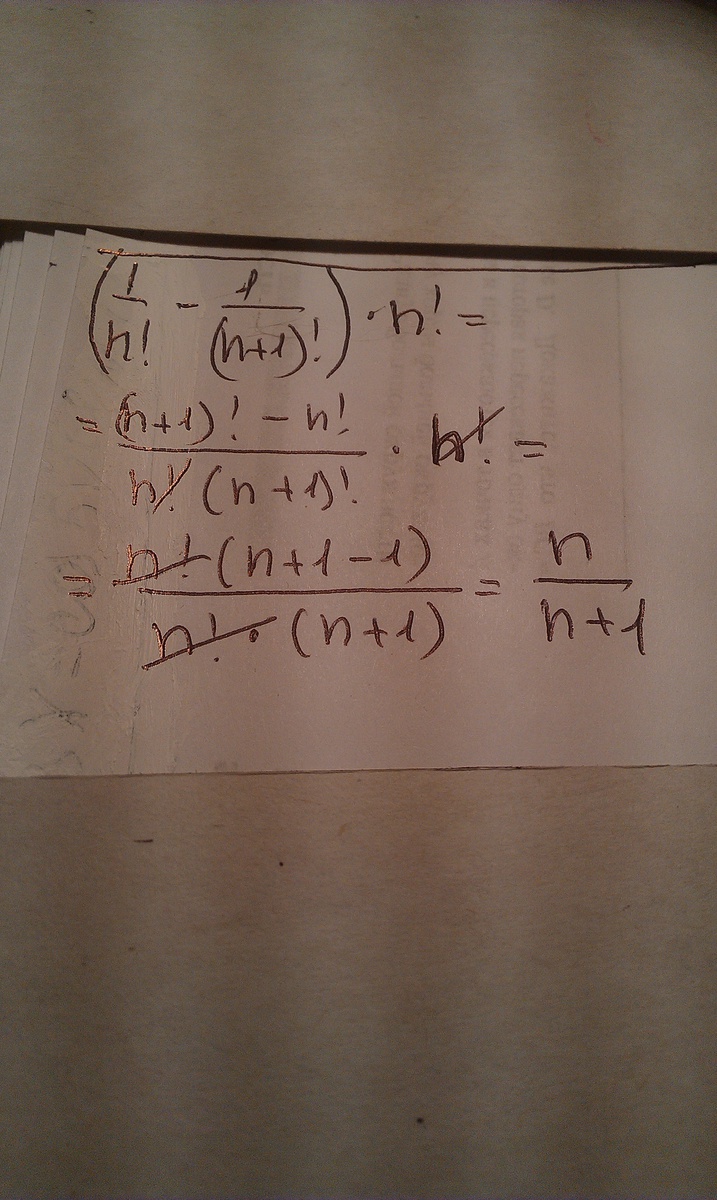 (1/n! - 1/(n+1)!) · n! =
= ((n+1)! - n!)/(n! (n+1)!) · n! =
= (n! (n+1-1))/(n! · (n+1)) = n/(n+1)